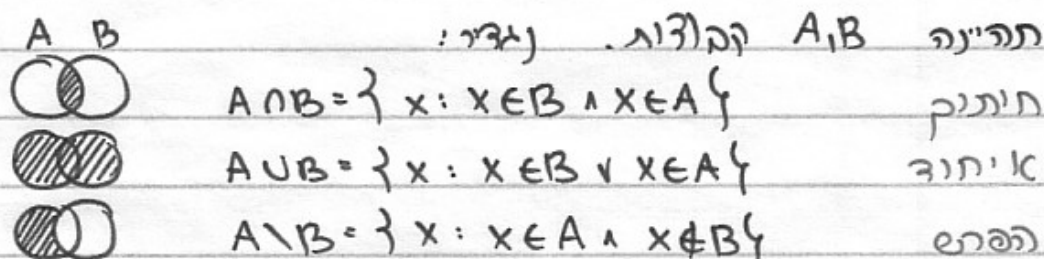 תהיינה A,B קבוצות. נגדיר:
חיתוך A∩B = { x : x∈B ∧ x∈A }
איחוד A∪B = { x : x∈B ∨ x∈A }
הפרש A\B = { x : x∈A ∧ x∉B }
A B